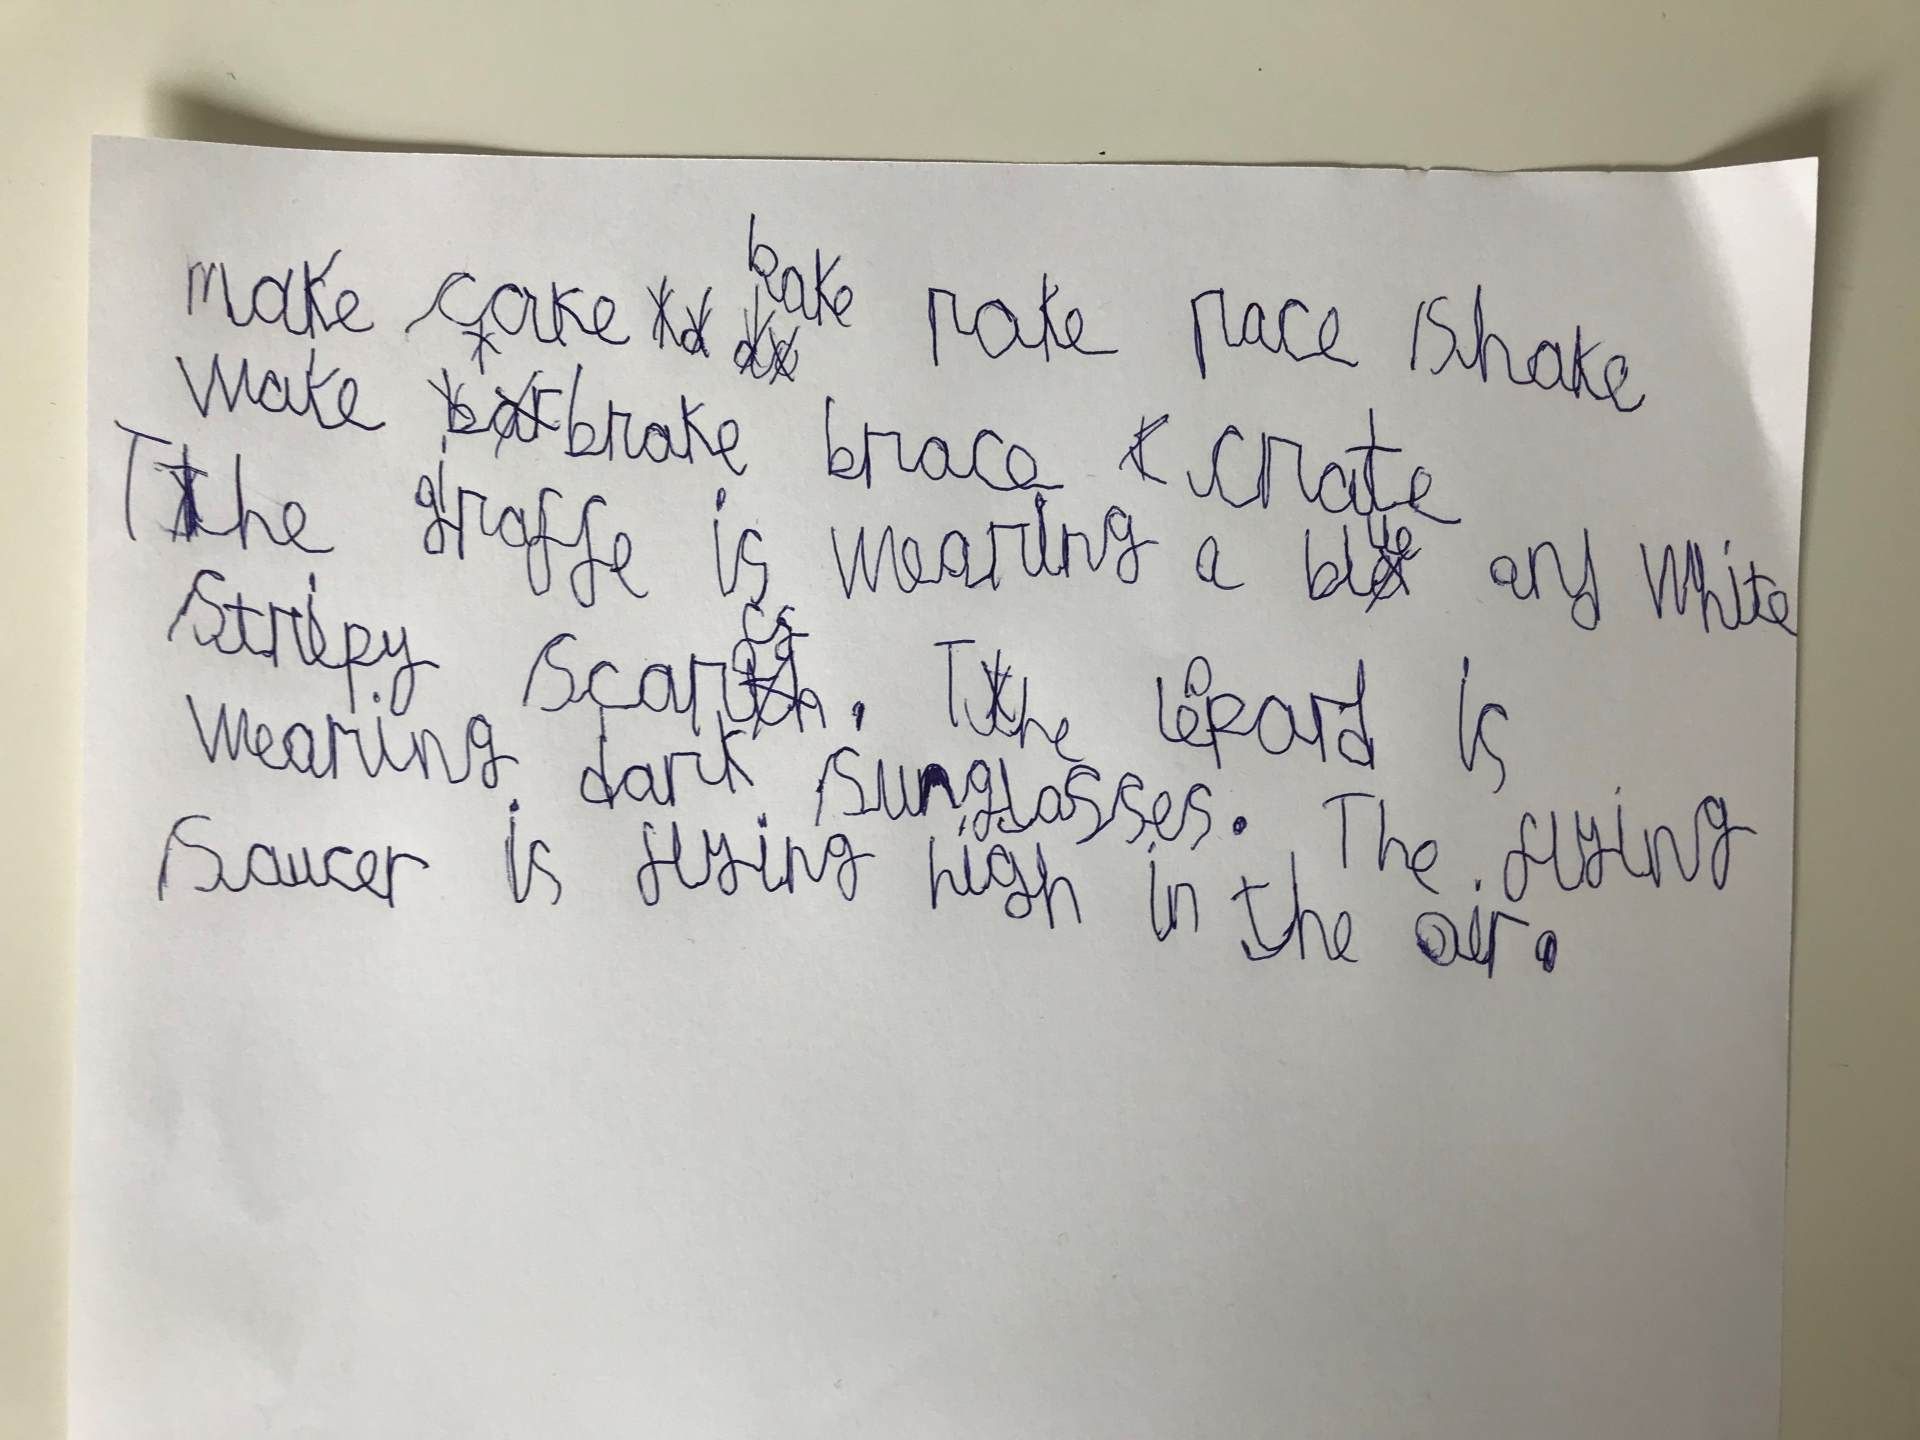 make cake bake rake race shake
wake brake brace crate
The giraffe is wearing a blue and white
stripy scarf. The lepard is
wearing dark sunglasses. The flying
saucer is flying high in the air.